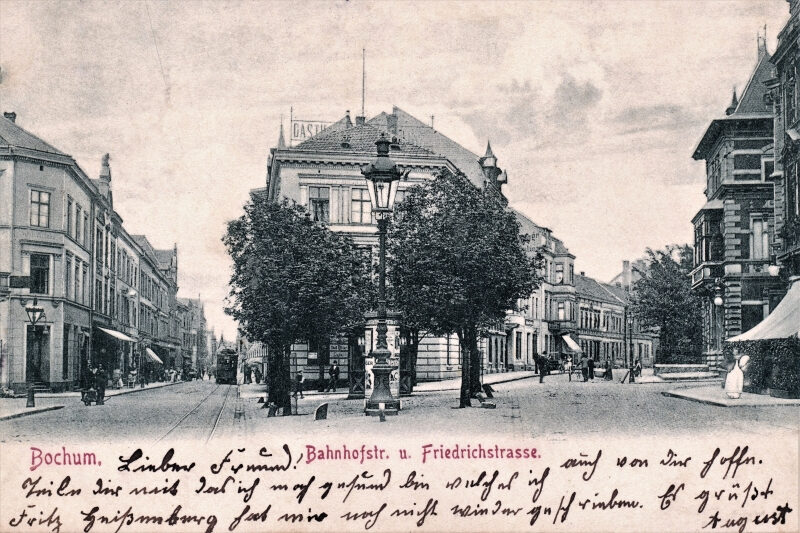 GASTH
Bochum.
Bahnhofstr. u. Friedrichstrasse.
Lieber Freund! auch von dir hoffe.
Teile dir mit das ich noch gesund bin welches ich
Fritz Heißenberg hat mir noch nicht wieder geschrieben. Es grüßt
August